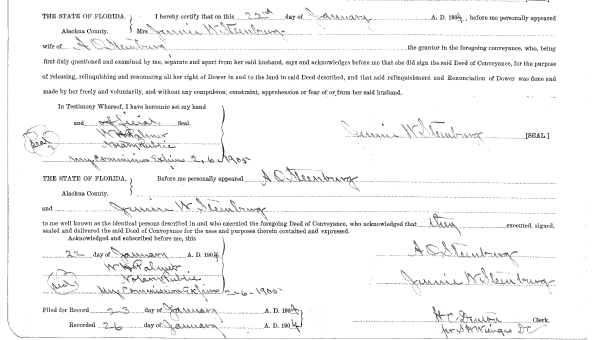 THE STATE OF FLORIDA. I hereby certify that on this 22nd day of January A. D. 1904, before me personally appeared
Alachua County. Mrs. Jennie W. Steenburg
wife of A O. Steenburg the grantor in the foregoing conveyance, who, being
first duly questioned and examined by me, separate and apart from her said husband, says and acknowledges before me that she did sign the said Deed of Conveyance, for the purpose
of releasing, relinquishing and renouncing all her right of Dower in and to the land in said Deed described, and that said relinquishment and Renunciation of Dower was done and
made by her freely and voluntarily, and without any compulsion, constraint, apprehension or fear of or from her said husband.
In Testimony Whereof, I have hereunto set my hand
and official Seal.
W H Palmer
Jennie W Steenburg [SEAL]
Seal
Notary Public
My Commission Expires 2, 6 - 1905
THE STATE OF FLORIDA. Before me personally appeared A O. Steenburg
Alachua County.
and Jennie W Steenburg
to me well known as the identical persons described in and who executed the foregoing Deed of Conveyance, who acknowledged that they executed, signed,
sealed and delivered the said Deed of Conveyance for the uses and purposes therein contained and expressed.
Acknowledged and subscribed before me, this
22 day of January A. D. 1904
A O. Steenburg
W H Palmer
Notary Public
Jennie W Steenburg
Seal
My Commission Expires 2-6-1905
Filed for Record 23 day of January A. D. 1904
H C. Denton Clerk.
Recorded 26 day of January A. D. 1904
per S H Wienges D C